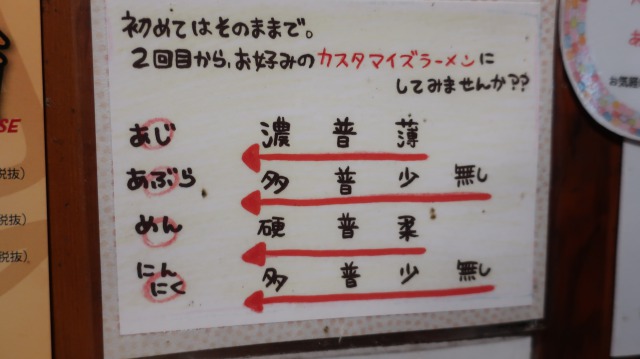 初めてはそのままで。
2回目から、お好みのカスタマイズラーメンに
してみませんか??
あじ 濃 普 薄
あぶら 多 普 少 無し
めん 硬 普 柔
にん
にく 多 普 少 無し
SE
税抜)
税抜)
税抜)
お
お気軽